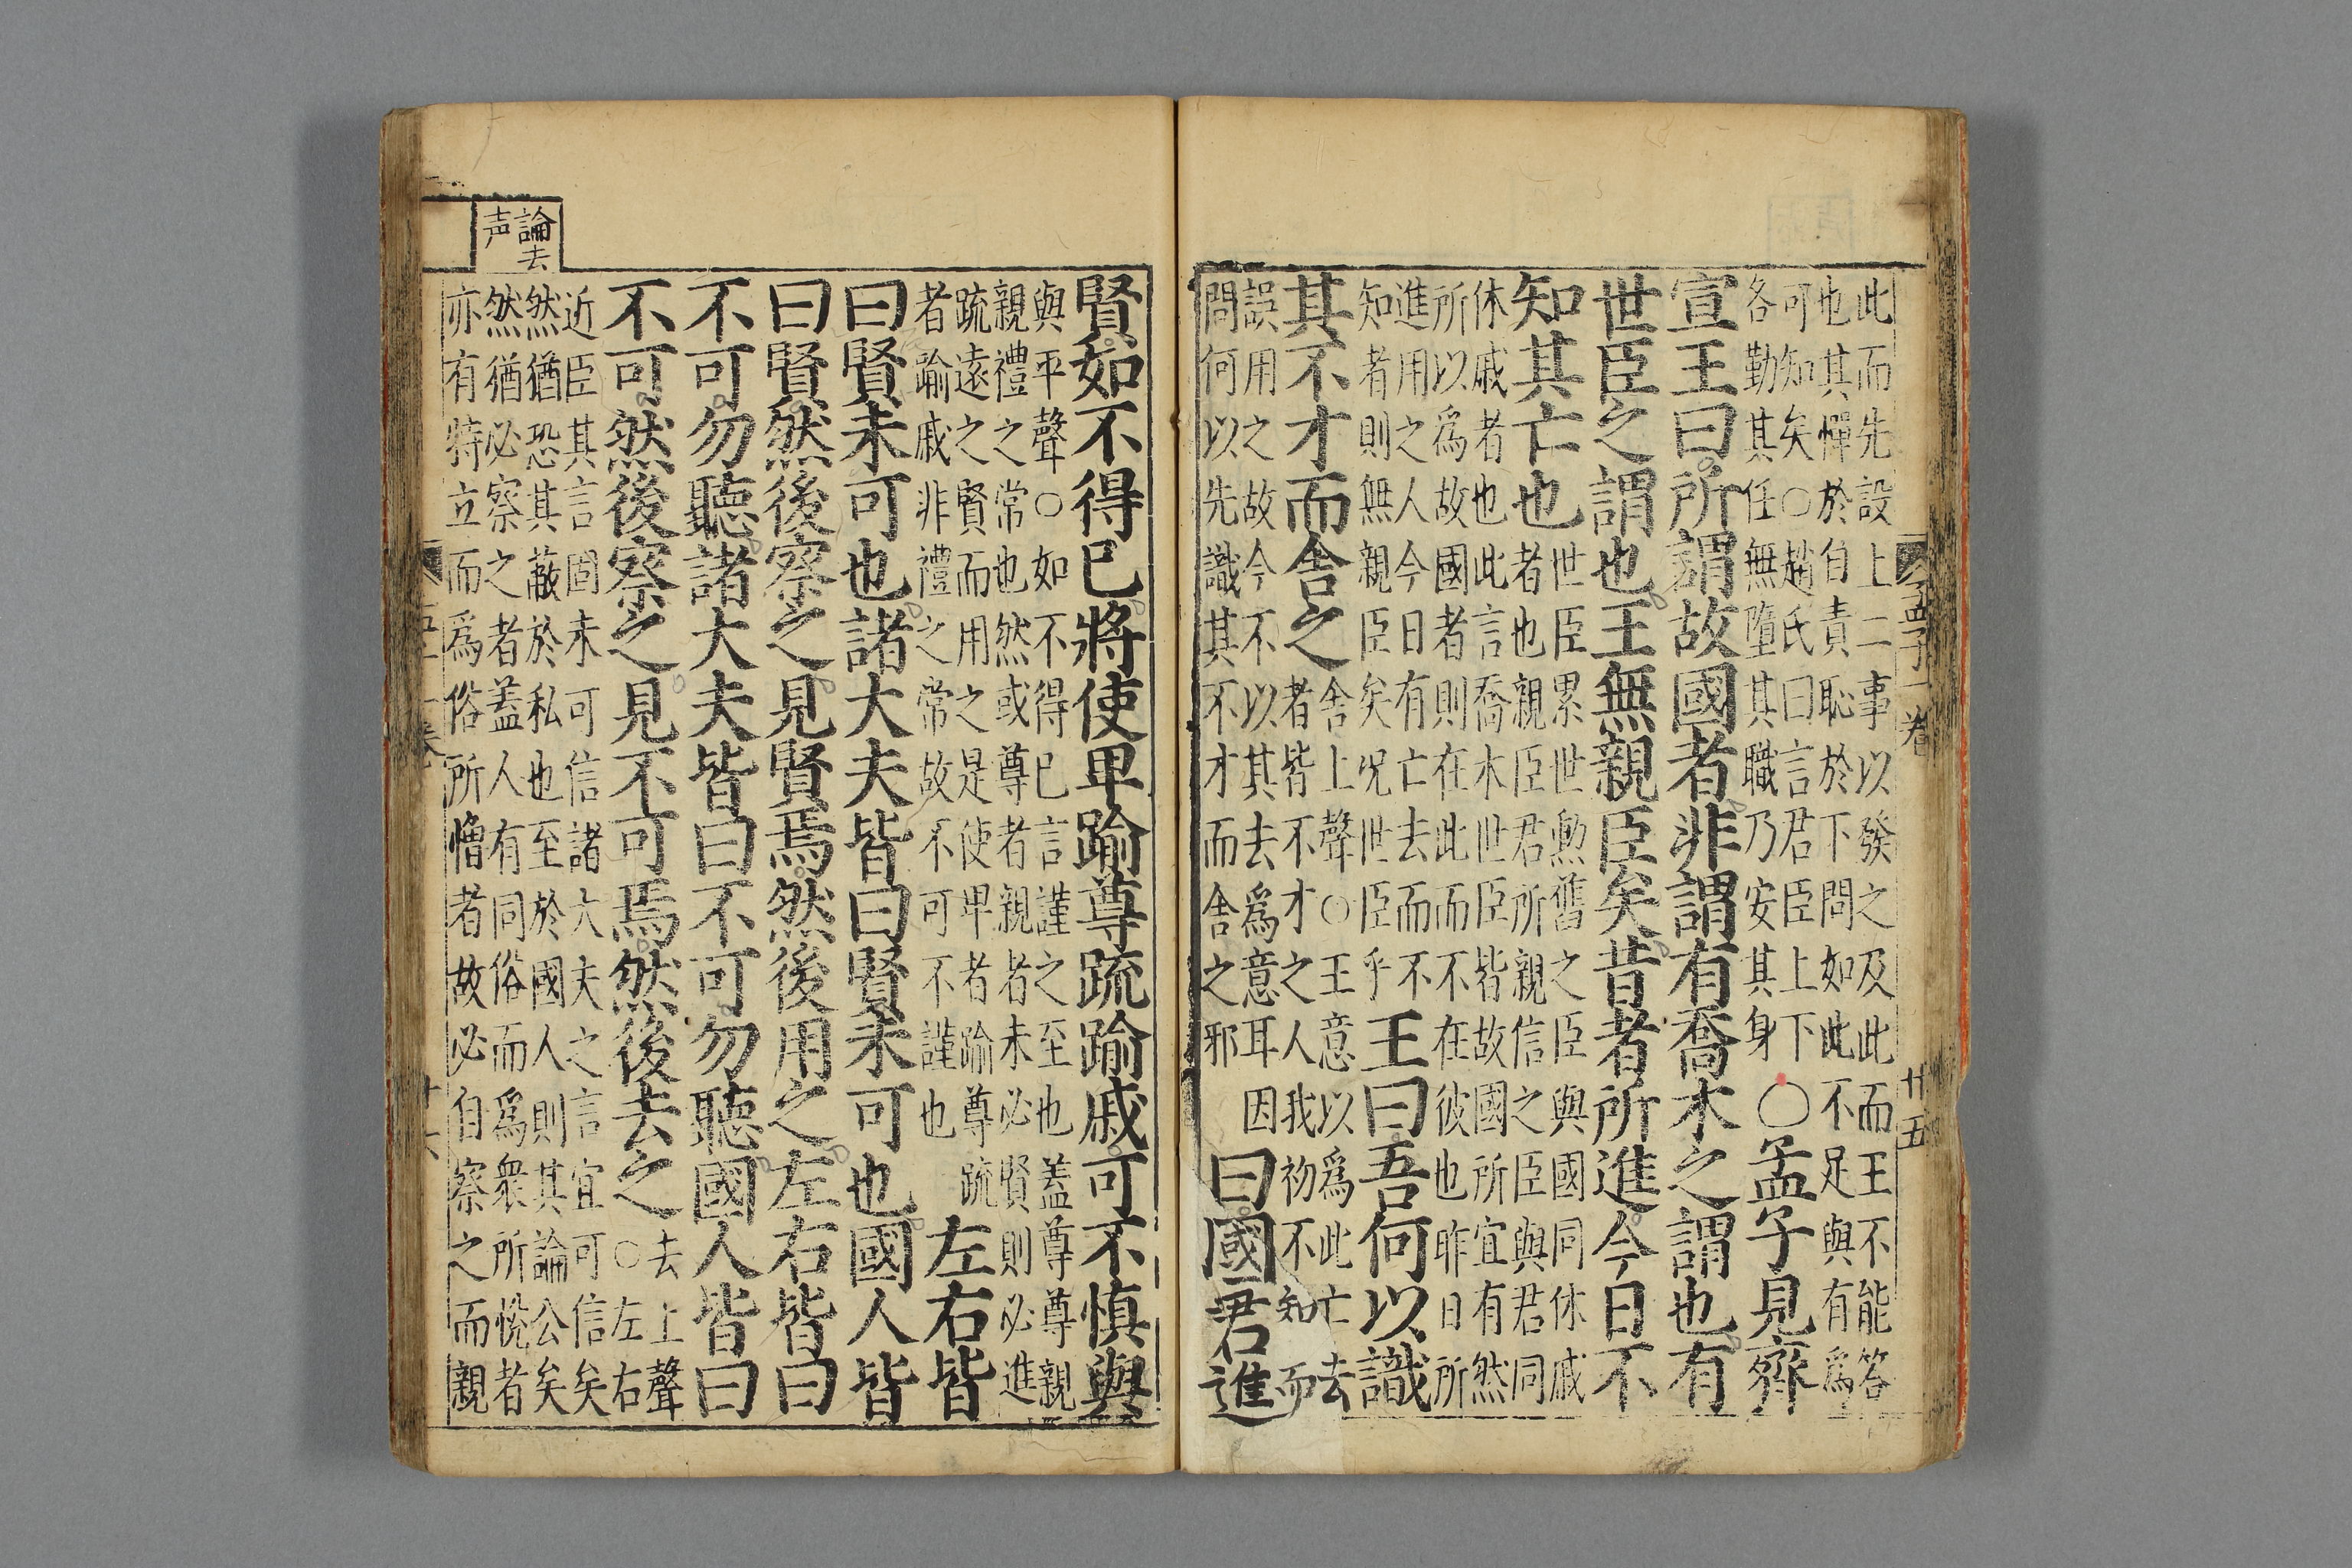 孟子一卷　廿五
此而先設上二事以發之及此而王不能答
也其憚於自責恥於下問如此不足與有爲
可知矣○趙氏曰言君臣上下
各勤其任無墮其職乃安其身
○孟子見齊
宣王曰所謂故國者非謂有喬木之謂也有
世臣之謂也王無親臣矣昔者所進今日不
知其亡也
世臣累世勲舊之臣與國同休戚
者也親臣君所親信之臣與君同
休戚者也此言喬木世臣皆故國所宜有然
所以爲故國者則在此而不在彼也昨日所
進用之人今日有亡去而不
知者則無親臣矣况世臣乎
王曰吾何以識
其不才而舍之
舍上聲○王意以爲此亡去
者皆不才之人我初不知而
誤用之故今不以其去爲意耳因
問何以先識其不才而舍之邪
曰國君進
賢如不得已將使卑踰尊疏踰戚可不慎與
與平聲○如不得已言謹之至也蓋尊尊親
親禮之常也然或尊者親者未必賢則必進
疏遠之賢而用之是使卑者踰尊疏
者踰戚非禮之常故不可不謹也
左右皆
曰賢未可也諸大夫皆曰賢未可也國人皆
曰賢然後察之見賢焉然後用之左右皆曰
不可勿聽諸大夫皆曰不可勿聽國人皆曰
不可然後察之見不可焉然後去之
去上聲
○左右
近臣其言固未可信諸大夫之言宜可信矣
然猶恐其蔽於私也至於國人則其論公矣
然猶必察之者蓋人有同俗而爲衆所悅者
亦有特立而爲俗所憎者故必自察之而親
論去
声